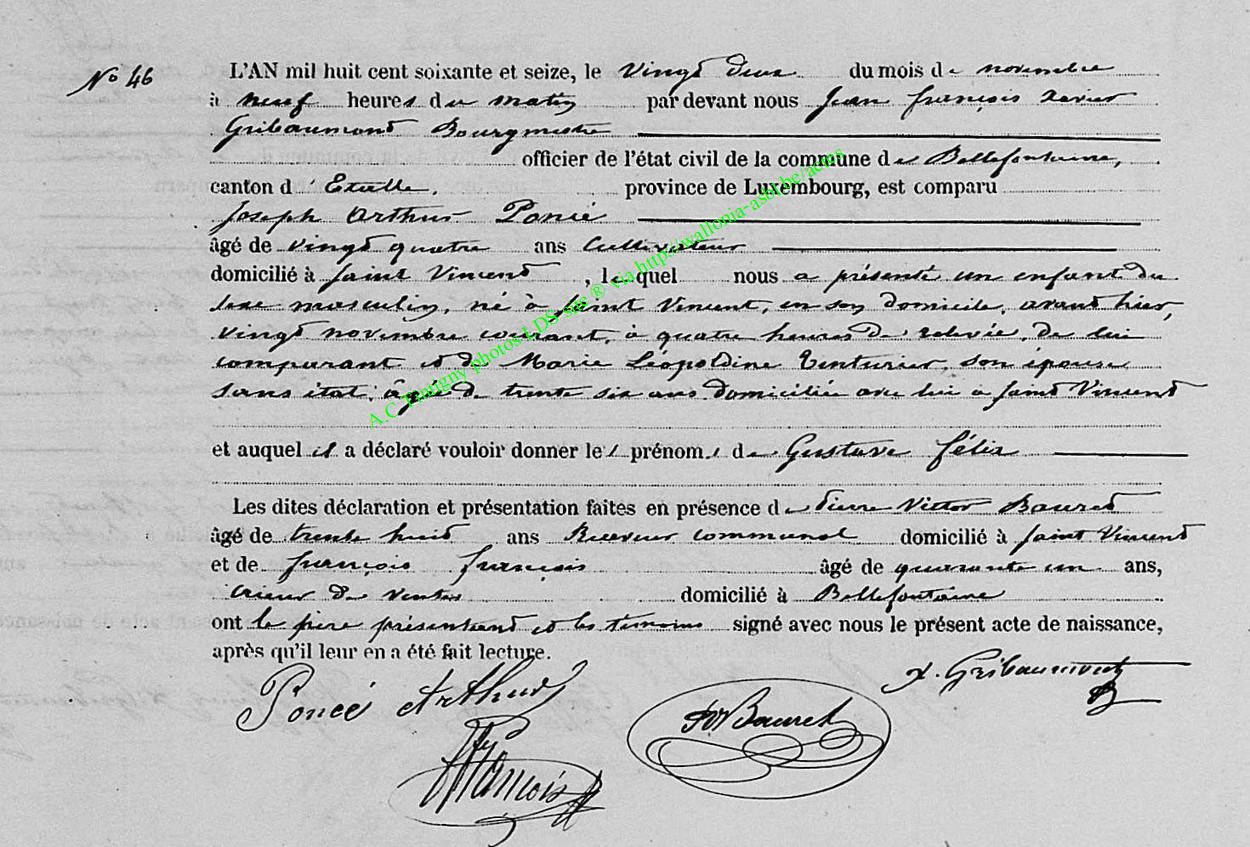 No 46
L'AN mil huit cent soixante et seize, le vingt deux du mois de novembre
à neuf heures du matin par devant nous Jean françois Xavier
Gribaumont Bourgmestre
officier de l'état civil de la commune de Bellefontaine,
canton d'Etalle, province de Luxembourg, est comparu
Joseph Arthur Poncé
âgé de vingt quatre ans Cultivateur
domicilié à Saint Vincent, lequel nous a présenté un enfant du
sexe masculin, né à Saint Vincent, en son domicile, avant hier,
vingt novembre courant, à quatre heures de relevée, de lui
comparant et de Marie Léopoldine Tinturier, son épouse
sans état, âgée de trente six ans domiciliée avec lui à Saint Vincent
et auquel il a déclaré vouloir donner les prénoms de Gustave Félix
Les dites déclaration et présentation faites en présence de Pierre Victor Bauret
âgé de trente huit ans Receveur communal domicilié à Saint Vincent
et de françois françois âgé de quarante un ans,
crieur de ventes domicilié à Bellefontaine
ont le père présentant et les témoins signé avec nous le présent acte de naissance,
après qu'il leur en a été fait lecture.
X. Gribaumont
Poncé Arthur
PVBauret
françois
A.C. Tintigny photos LDS site ® via http://wallonia-asbl.be/actes